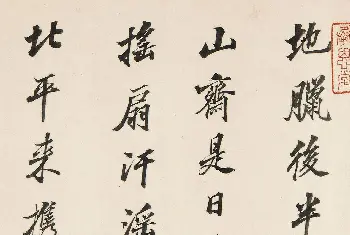 地臘後半
山齋是日
搖扇汗淫
北平来攜